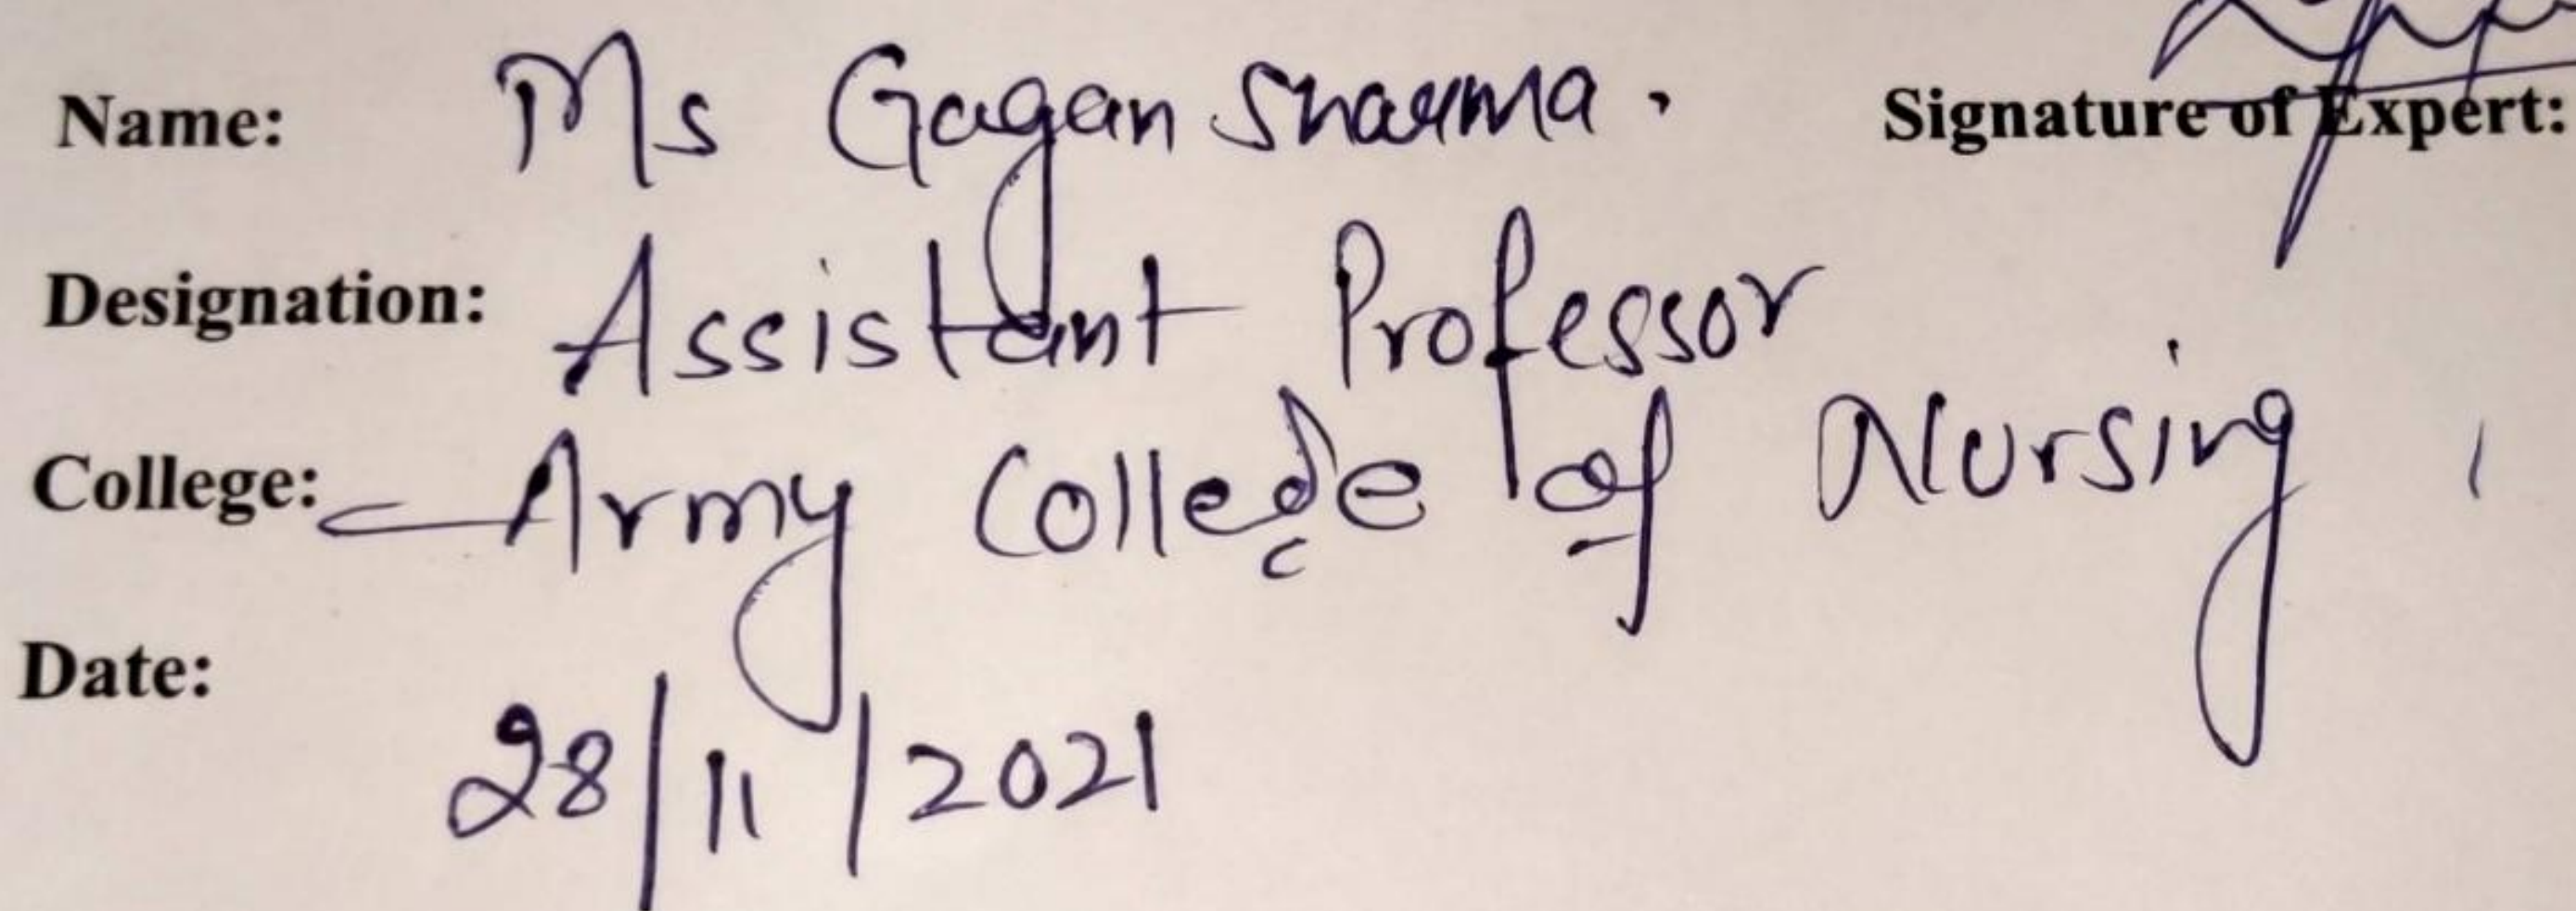 Name: Ms Gagan Sharma. Signature of Expert:
Designation: Assistant Professor
College: Army College of Nursing,
Date:
28/11/2021